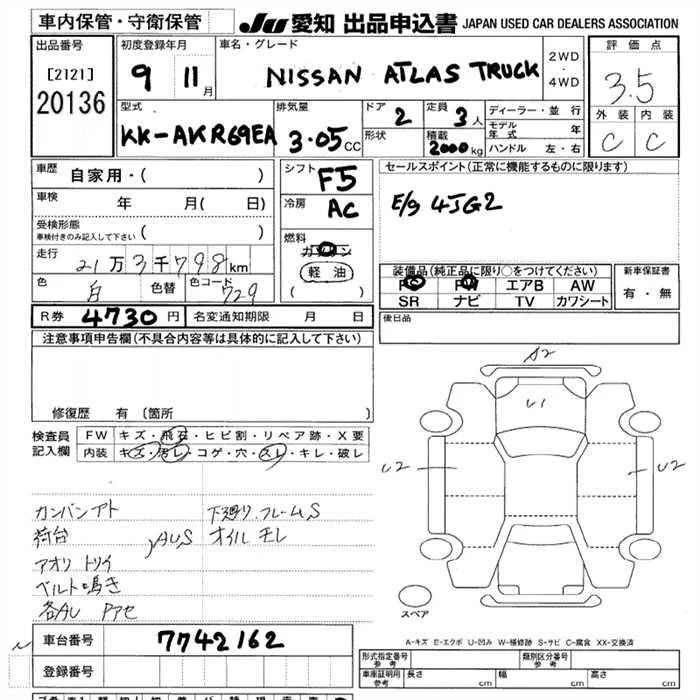 車内保管・守衛保管
JU 愛知 出品申込書 JAPAN USED CAR DEALERS ASSOCIATION
出品番号
[2121]
20136
初度登録年月
9 11月
車名・グレード
NISSAN ATLAS TRUCK
2WD
・
4WD
評価点
3.5
外装 内装
C C
型式
KK-AKR69EA
排気量
3.05CC
ドア 2
形状
定員 3人
積載 2000kg
ディーラー・並行
モデル年式 年
ハンドル 左・右
車歴
自家用・( )
車検 年 月( 日)
受検形態
車検付きのみ記入して下さい ( )
走行
21万3千798km
色 白 色替 色コード 729
シフト F5
冷房 AC
燃料
ガソリン
軽油
( )
セールスポイント(正常に機能するものに限ります)
E/g 4JG2
装備品(純正品に限り○をつけてください)
PS PW エアB AW
SR ナビ TV カワシート
新車保証書
有・無
R券 4730円 名変通知期限 月 日
後日品
注意事項申告欄(不具合内容等は具体的に記入して下さい)
修復歴 有〔箇所 〕
検査員記入欄
FW キズ・飛石・ヒビ割・リペア跡・X要
内装 キズ・汚レ・コゲ・穴・スレ・キレ・破レ
カンバンアト
荷台
アオリ トリイ
AUS
ベルト鳴き
各AU
下廻り.フレームS
オイルモレ
A2
U1
U2
U2
スペア
A-キズ E-エクボ U-凹み W-補修跡 S-サビ C-腐食 XX-交換済
車台番号 7742162
登録番号
形式指定番号
参考
類別区分番号
参考
車庫証明用
参考
長さ cm 幅 cm 高さ cm